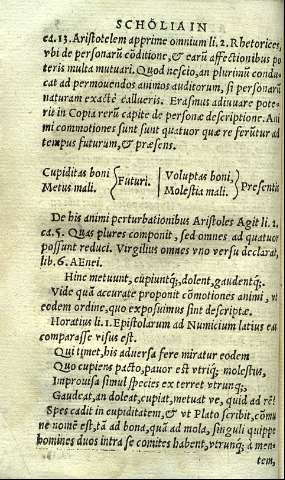 SCHOLIA IN
ca.13. Aristotelem apprime omnium li.2. Rhetorices,
vbi de personarũ cõditione, & earũ affectionibus po
teris multa mutuari. Quod nescio, an plurimũ condu
cat ad permouendos animos auditorum, si personarũ
naturam exactè callueris. Erasmus adiuuare pote-
rit in Copia rerũ capite de personæ descriptione. Ani
mi commotiones sunt sunt quatuor quæ referũtur ad
tempus futurum, & præsens.
Cupiditas boni, Voluptas boni,
Metus mali. Futuri. Molestia mali. Præsentis
De his animi perturbationibus Aristoles Agit li.2.
ca.5. Quas plures componit, sed omnes ad quatuor
possunt reduci. Virgilius omnes vno versu declarat,
lib.6. AEnei.
Hinc metuunt, cupiuntq;, dolent, gaudentq;.
Vide quã accurate proponit cõmotiones animi, vt
eodem ordine, quo exposuimus sint descriptæ.
Horatius li.1. Epistolarum ad Numicium latius ea
comparasse visus est.
Qui timet, his aduersa fere miratur eodem
Quo cupiens pacto, pauor est vtriq; molestus,
Improuisa simul species exterret vtrunq;,
Gaudeat, an doleat, cupiat, metuat ve, quid ad rẽ?
Spes cadit in cupiditatem, & vt Plato scribit, cõmu
ne nomẽ est, tã ad bona, quã ad mola, singuli quippe
homines duos intra se comites habent, vtrunq; a men-
tem,